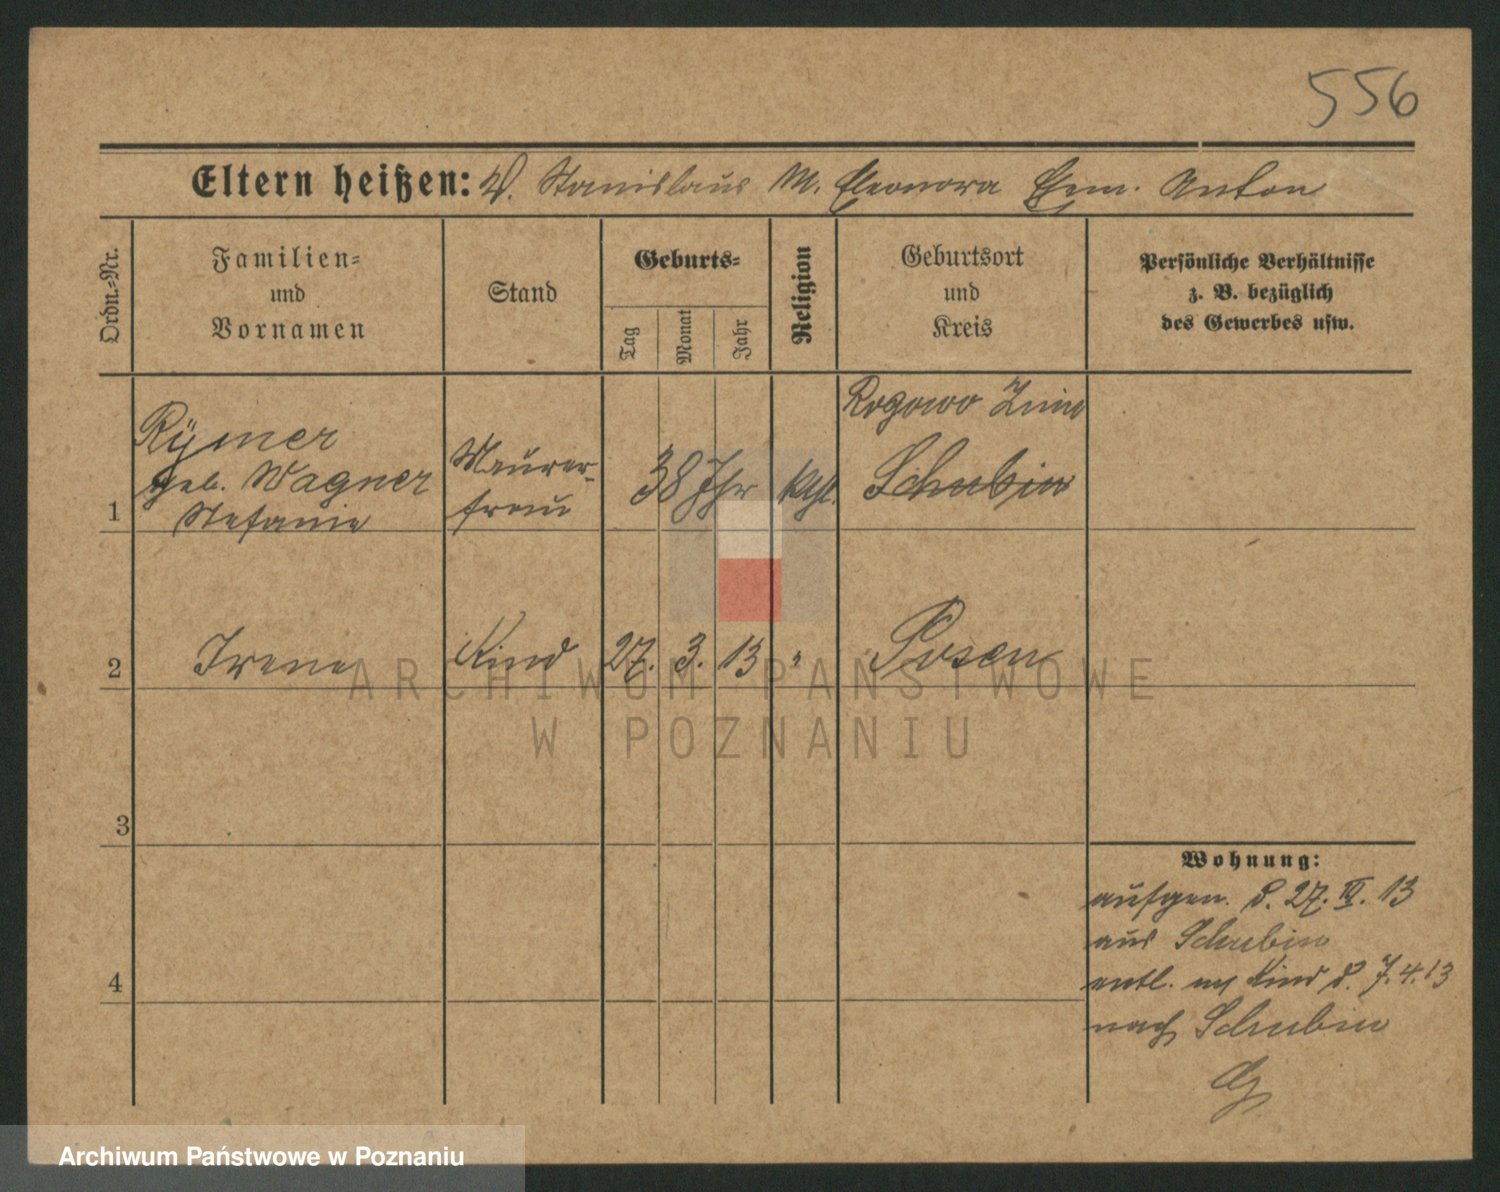 556
Eltern heißen: V. Stanislaus M. Eleonora Em. Anton
Ordn.-Nr.
Familien-
und
Vornamen
Stand
Geburts-
Tag
Monat
Jahr
Religion
Geburtsort
und
Kreis
Persönliche Verhältnisse
z. B. bezüglich
des Gewerbes usw.
1
Rÿmer
geb. Wagner
Stefanie
Maurer-
frau
38 Jhr
kath.
Rogowo Znin
Schubin
2
Irene
Kind
27. 3. 13
"
Posen
3
4
Wohnung:
aufgen. d. 27. III. 13
aus Schubin
entl. Kind d. 7.4.13
nach Schubin
ARCHIWUM PAŃSTWOWE
W POZNANIU
Archiwum Państwowe w Poznaniu